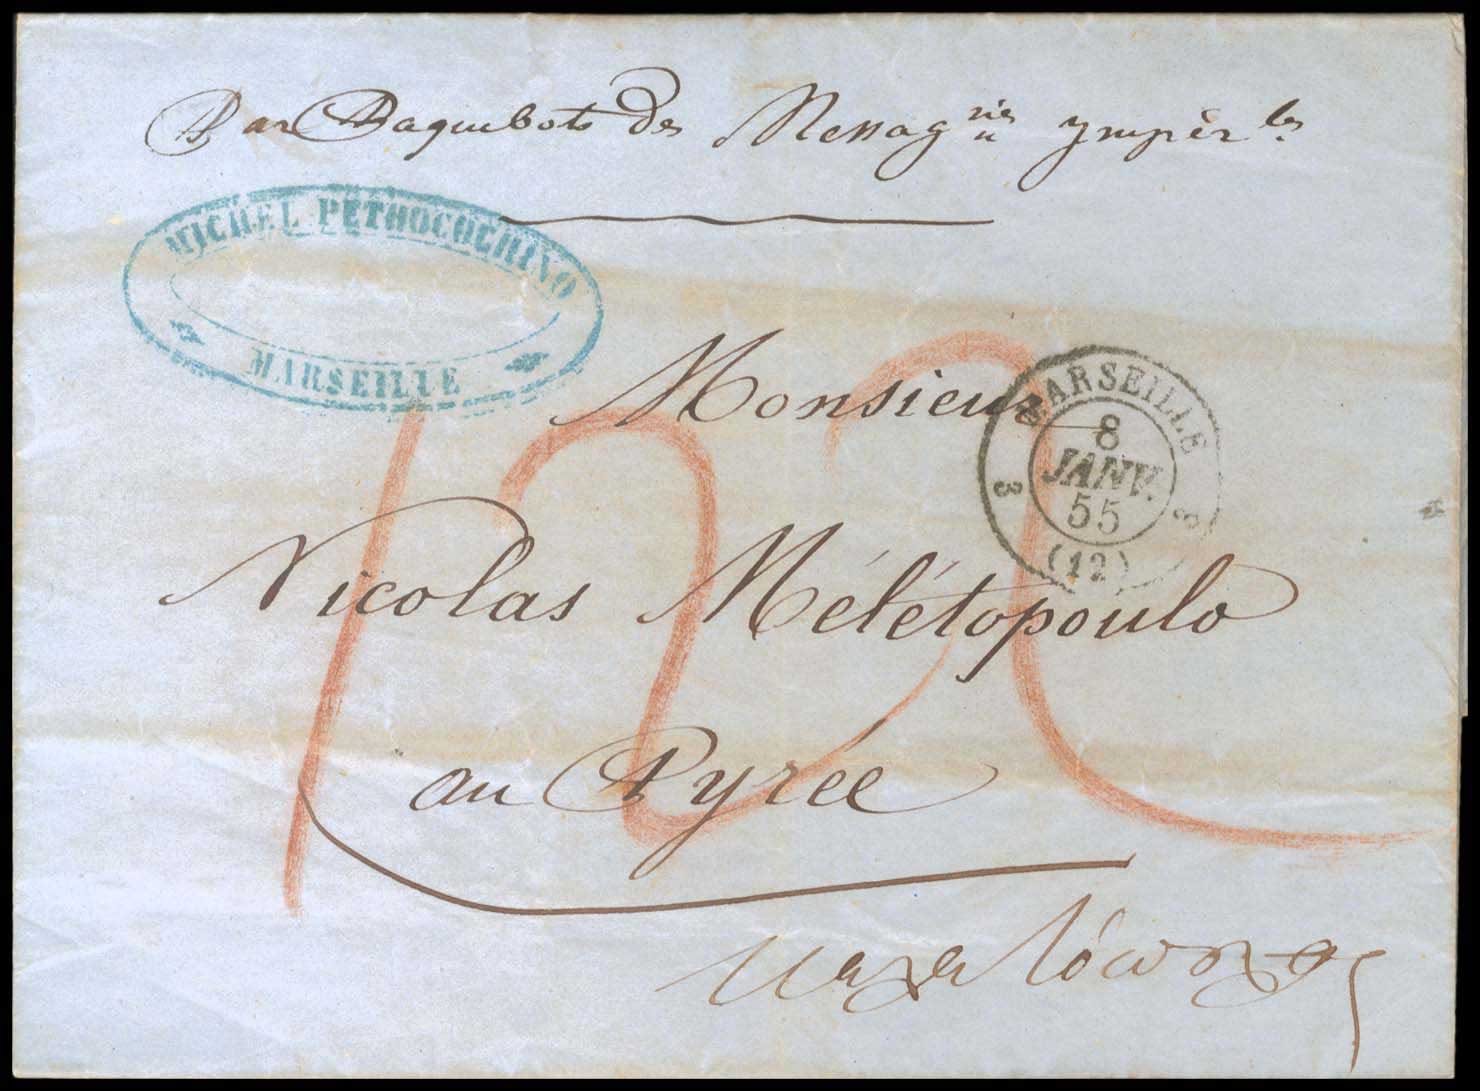 Par Paquebots des Messag^ries ympér^les
MICHEL PETROCOCHINO
MARSEILLE
Monsieur
MARSEILLE
8
JANV.
55
3 3
(12)
Nicolas Mélétopoulo
au Pyrée